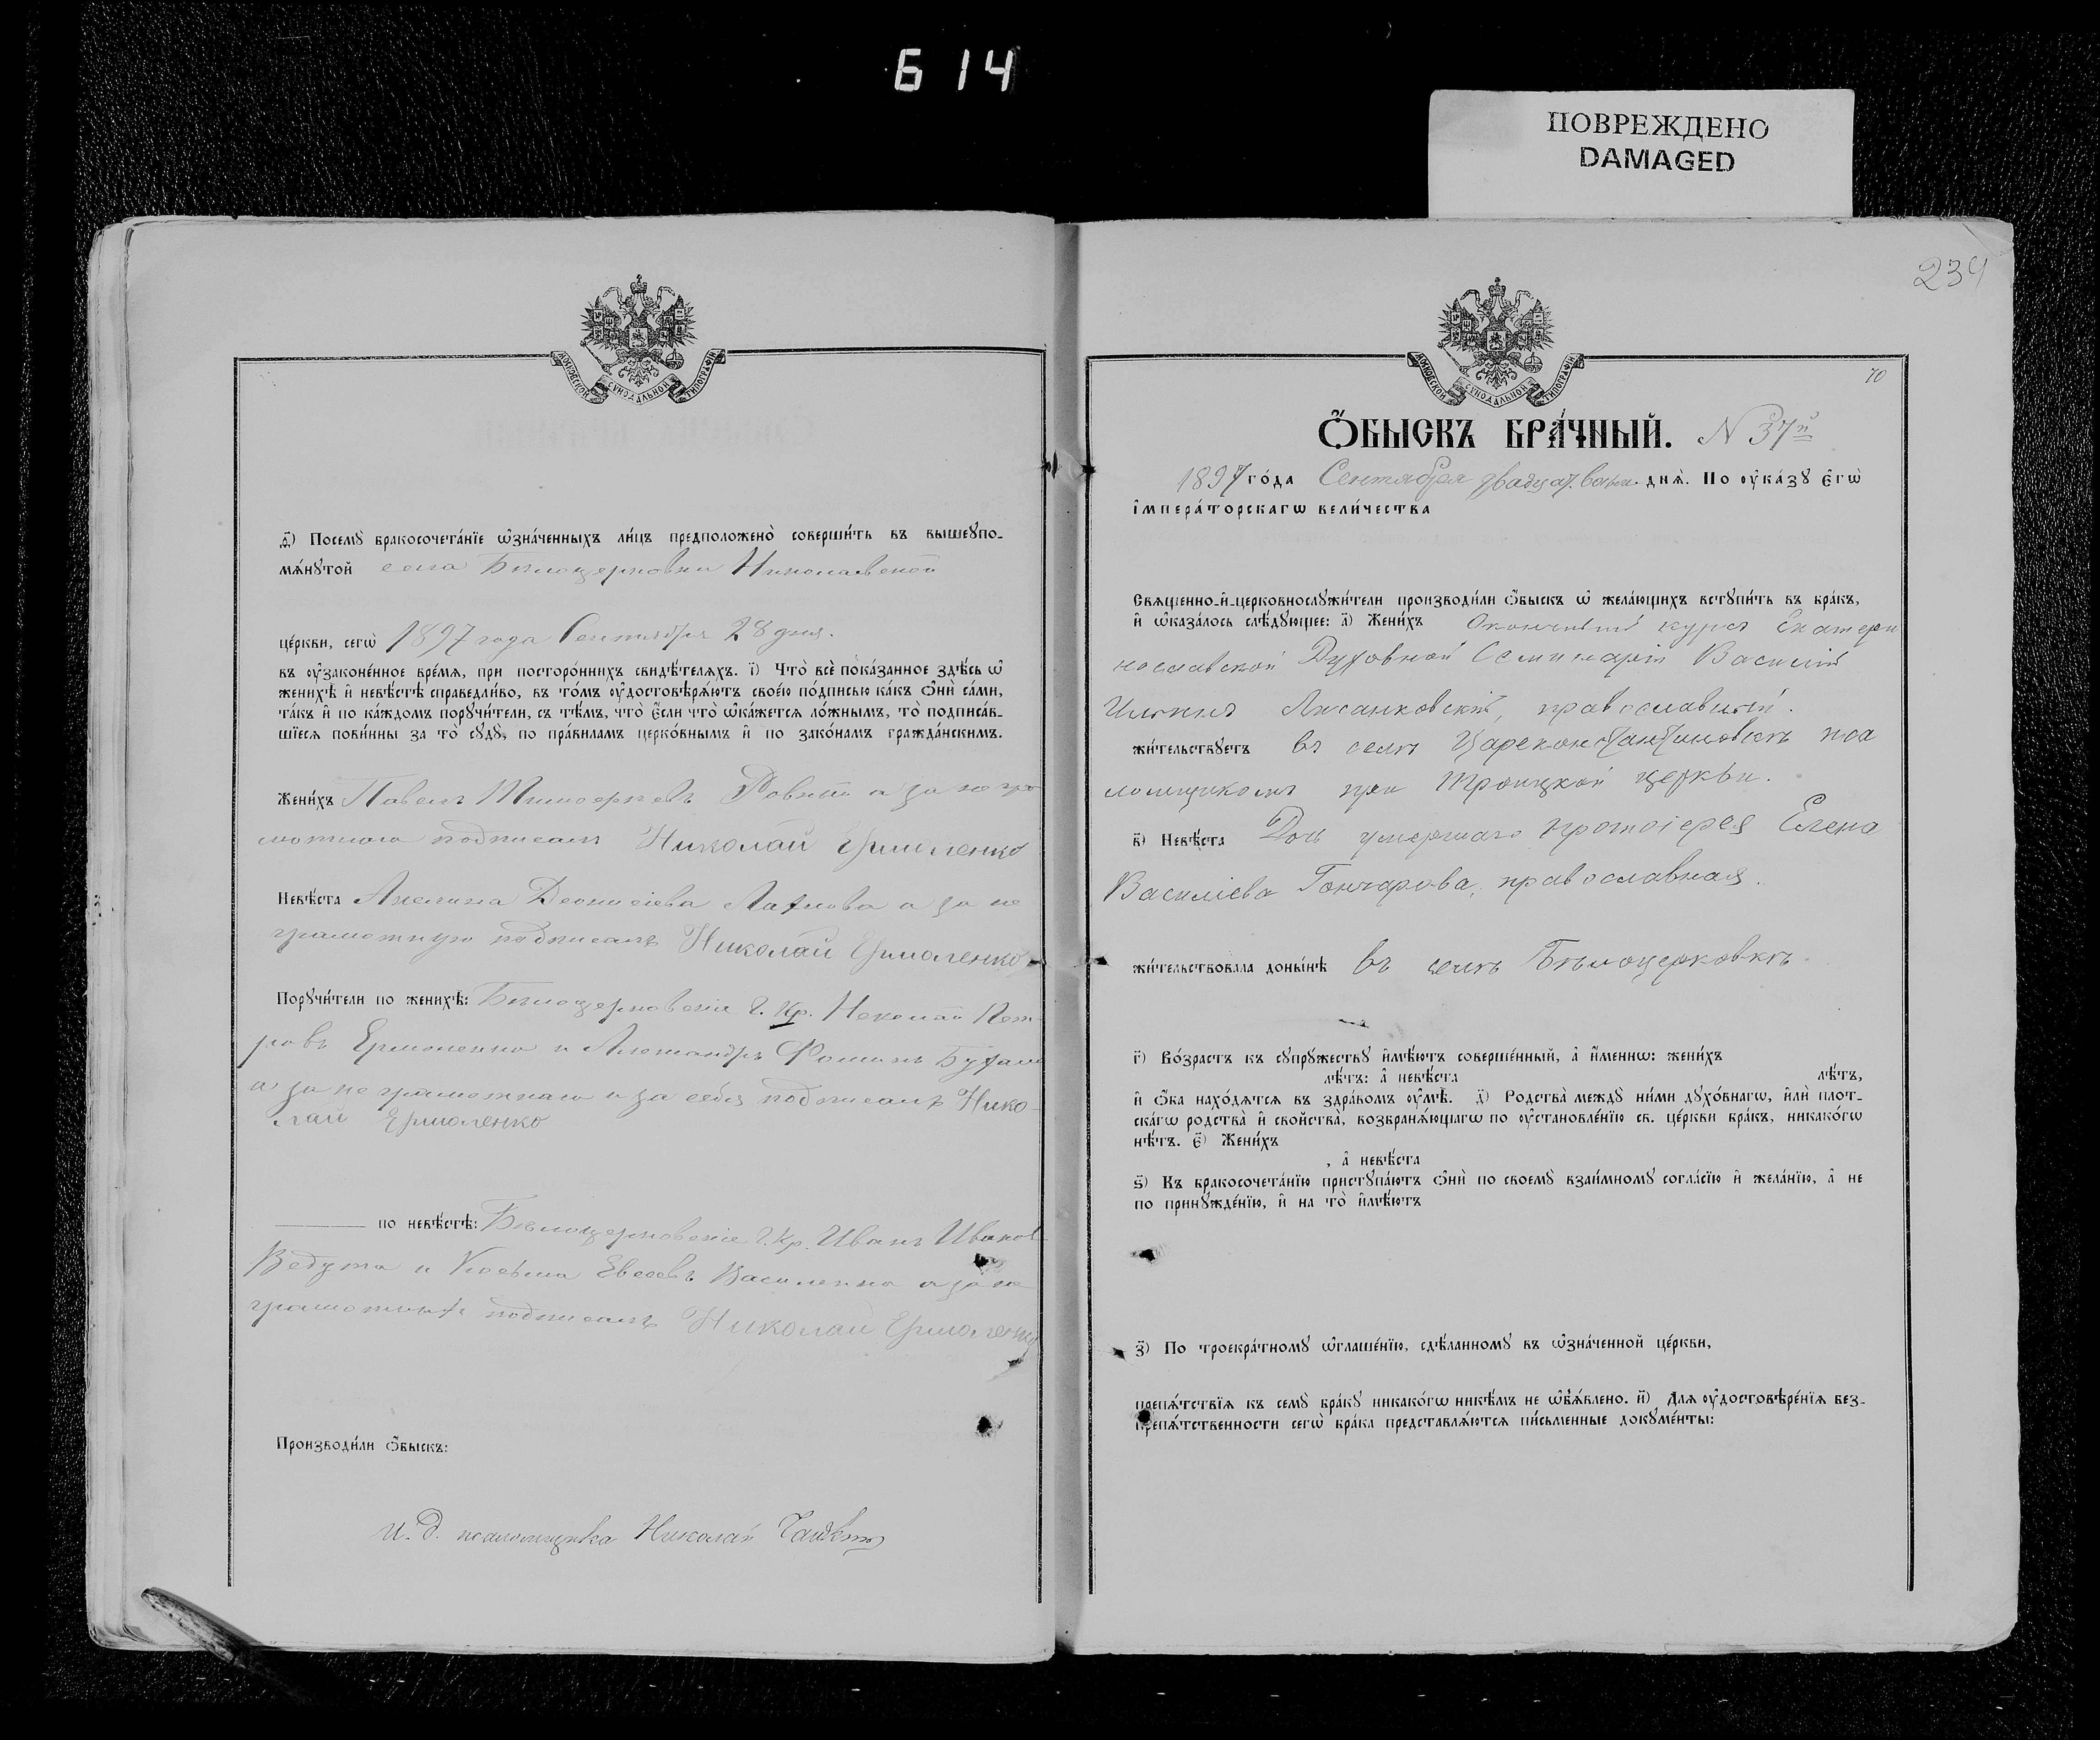 Б 14
ПОВРЕЖДЕНО
DAMAGED
234
МОСКОВСКОЙ СѴНОДАЛЬНОЙ ТИПОГРАФІИ
ѳ҃) Посемꙋ̀ бракосочета́нїе ѡ҆зна́ченныхъ ли́цъ предположено̀ соверши́ть въ вышеꙋпо-
мѧ́нꙋтой села Бѣлоцерковки Николаевской
це́ркви, сегѡ̀ 1897 года Сентября 28 дня.
въ ᲂу҆зако́ненное вре́мѧ, при посторо́ннихъ свидѣ́телѧхъ. і҃) Что̀ всѐ пока́занное здѣ́сь ѡ҆
женихѣ̀ и҆ невѣ́стѣ справедли́во, въ то́мъ ᲂу҆достовѣрѧ́ютъ свое́ю по́дписью ка́къ ѻ҆нѝ са́ми,
та́къ и҆ по ка́ждомъ порꙋчи́тели, съ тѣ́мъ, что̀ є҆́сли что̀ ѡ҆ка́жетсѧ ло́жнымъ, то̀ подписа́в-
шїесѧ пови́нны за то̀ сꙋдꙋ̀, по пра́виламъ церко́внымъ и҆ по зако́намъ гражда́нскимъ.
Жени́хъ Павелъ Тимофеевъ а за негра
мотнаго подписалъ Николай Ермоленко
Невѣ́ста Акелина Деонисіева а за не
грамотную подписалъ Николай Ермоленко
Порꙋчи́тели по женихѣ̀: Бѣлоцерковскіе г. кр. Николай Пет
ровъ Ермоленко и Александръ Фоминъ
а за неграмотнаго и за себя подписалъ Нико
лай Ермоленко
по невѣ́стѣ: Бѣлоцерковскіе г. кр. Иванъ Иванов
Ведута и Косьма Евсеевъ Василенко а за не
грамотныхъ подписалъ Николай Ермоленко
Производи́ли ѻ҆́быскъ:
и. д. псаломщика Николай
МОСКОВСКОЙ СѴНОДАЛЬНОЙ ТИПОГРАФІИ
70
Ѻ҆́БЫСКЪ БРА́ЧНЫЙ. N 37й
1897 го́да Сентября двадцат. восьм. днѧ̀. По ᲂу҆ка́зꙋ є҆гѡ̀
і҆мпера́торскагѡ вели́чества
Свѧще́нно-и҆-церковнослꙋжи́тели производи́ли ѻ҆́быскъ ѡ҆ жела́ющихъ встꙋпи́ть въ бра́къ,
и҆ ѡ҆каза́лось слѣ́дꙋющее: а҃) Жени́хъ Окончившій курсъ Екатери
нославской Духовной Семинаріи Василій
Ильинъ Лисанковскій, православный.
жи́тельствꙋетъ въ селѣ Цареконстантиновкѣ пса
ломщикомъ при Троицкой церкви.
в҃) Невѣ́ста Дочь умершаго протоіерея Елена
Василіева Гончарова, православная.
жи́тельствовала доны́нѣ въ селѣ Бѣлоцерковкѣ.
г҃) Во́зрастъ къ сꙋпрꙋ́жествꙋ и҆мѣ́ютъ соверше́нный, а҆ и҆́меннѡ: жени́хъ
лѣ́тъ: а҆ невѣ́ста лѣ́тъ,
и҆ ѻ҆́ба нахо́дѧтсѧ въ здра́вомъ ᲂу҆мѣ̀. д҃) Родства̀ междꙋ ни́ми дꙋхо́внагѡ, и҆лѝ плот-
ска́гѡ родства̀ и҆ свойства̀, возбранѧ́ющагѡ по ᲂу҆становле́нїю св. це́ркви бра́къ, никако́гѡ
нѣ́тъ. є҃) Жени́хъ
, а҆ невѣ́ста
ѕ҃) Къ бракосочета́нїю пристꙋпа́ютъ ѻ҆нѝ по своемꙋ̀ взаи́мномꙋ согла́сїю и҆ жела́нїю, а҆ не
по принꙋжде́нїю, и҆ на то̀ и҆мѣ́ютъ
з҃) По троекра́тномꙋ ѡ҆глаше́нїю, сдѣ́ланномꙋ въ ѡ҆зна́ченной це́ркви,
препѧ́тствїѧ къ семꙋ̀ бра́кꙋ никако́гѡ никѣ́мъ не ѡ҆б̾ѧ́влено. и҃) Длѧ ᲂу҆достовѣре́нїѧ без-
препѧ́тственности сегѡ̀ бра́ка представлѧ́ютсѧ пи́сьменные докꙋме́нты: